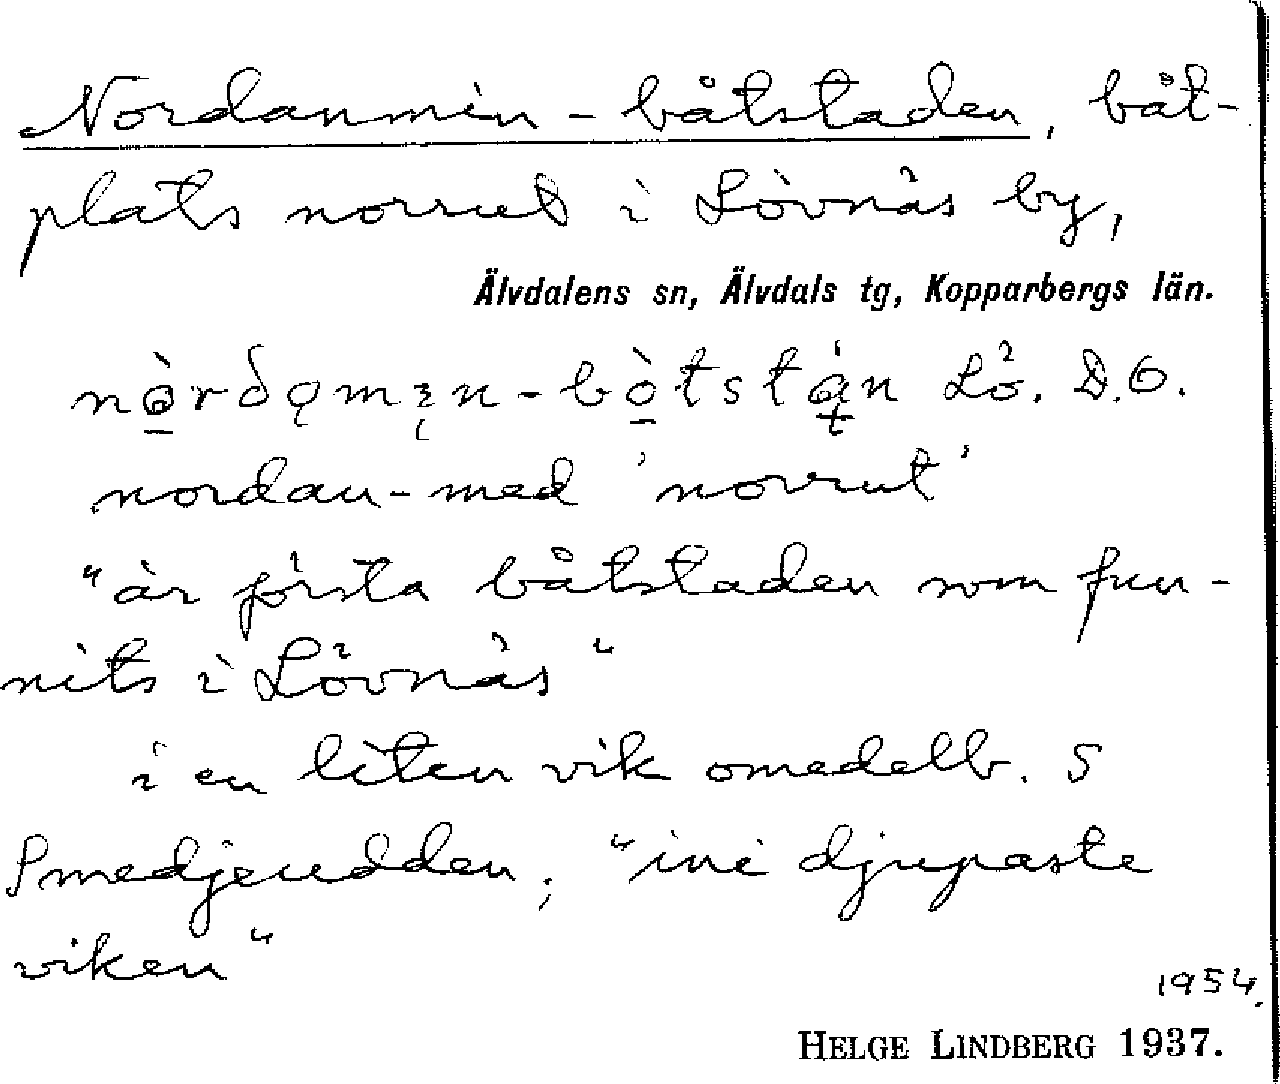 Nordanmin-båtstaden, båt-
plats norrut i Lövnäs by,
Älvdalens sn, Älvdals tg, Kopparbergs län.
Lö. D.O.
nordan-med 'norrut'
"är första båtstaden som fun-
nits i Lövnäs"
i en liten vik omedelb. S
Smedjeudden; "ini djupaste
viken"
1954.
HELGE LINDBERG 1937.